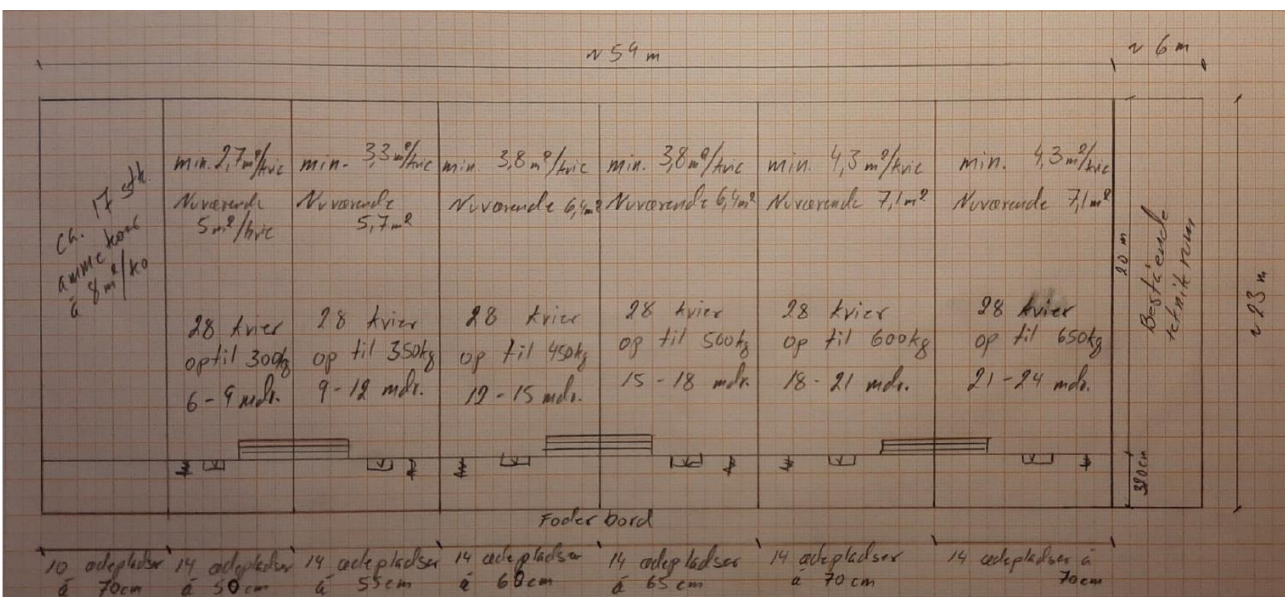 ~ 54 m
~ 6 m
Ch. 17 stk.
ammekoer
á 8 m²/ko
min. 2,7 m²/kvie
Nuværende
5 m²/kvie
28 kvier
op til 300kg
6-9 mdr.
min. 3,3 m²/kvie
Nuværende
5,7 m²
28 kvier
op til 350kg
9-12 mdr.
min. 3,8 m²/kvie
Nuværende 6,4m²
28 kvier
op til 450kg
12-15 mdr.
min. 3,8 m²/kvie
Nuværende 6,4m²
28 kvier
op til 500kg
15-18 mdr.
min. 4,3 m²/kvie
Nuværende 7,1m²
28 kvier
op til 600kg
18-21 mdr.
min. 4,3 m²/kvie
Nuværende 7,1m²
28 kvier
op til 650kg
21-24 mdr.
20 m
Bestående
teknikrum
~ 23 m
320cm
Foderbord
10 ædepladser
á 70cm
14 ædepladser
á 50cm
14 ædepladser
á 55cm
14 ædepladser
á 60cm
14 ædepladser
á 65cm
14 ædepladser
á 70cm
14 ædepladser á
70cm